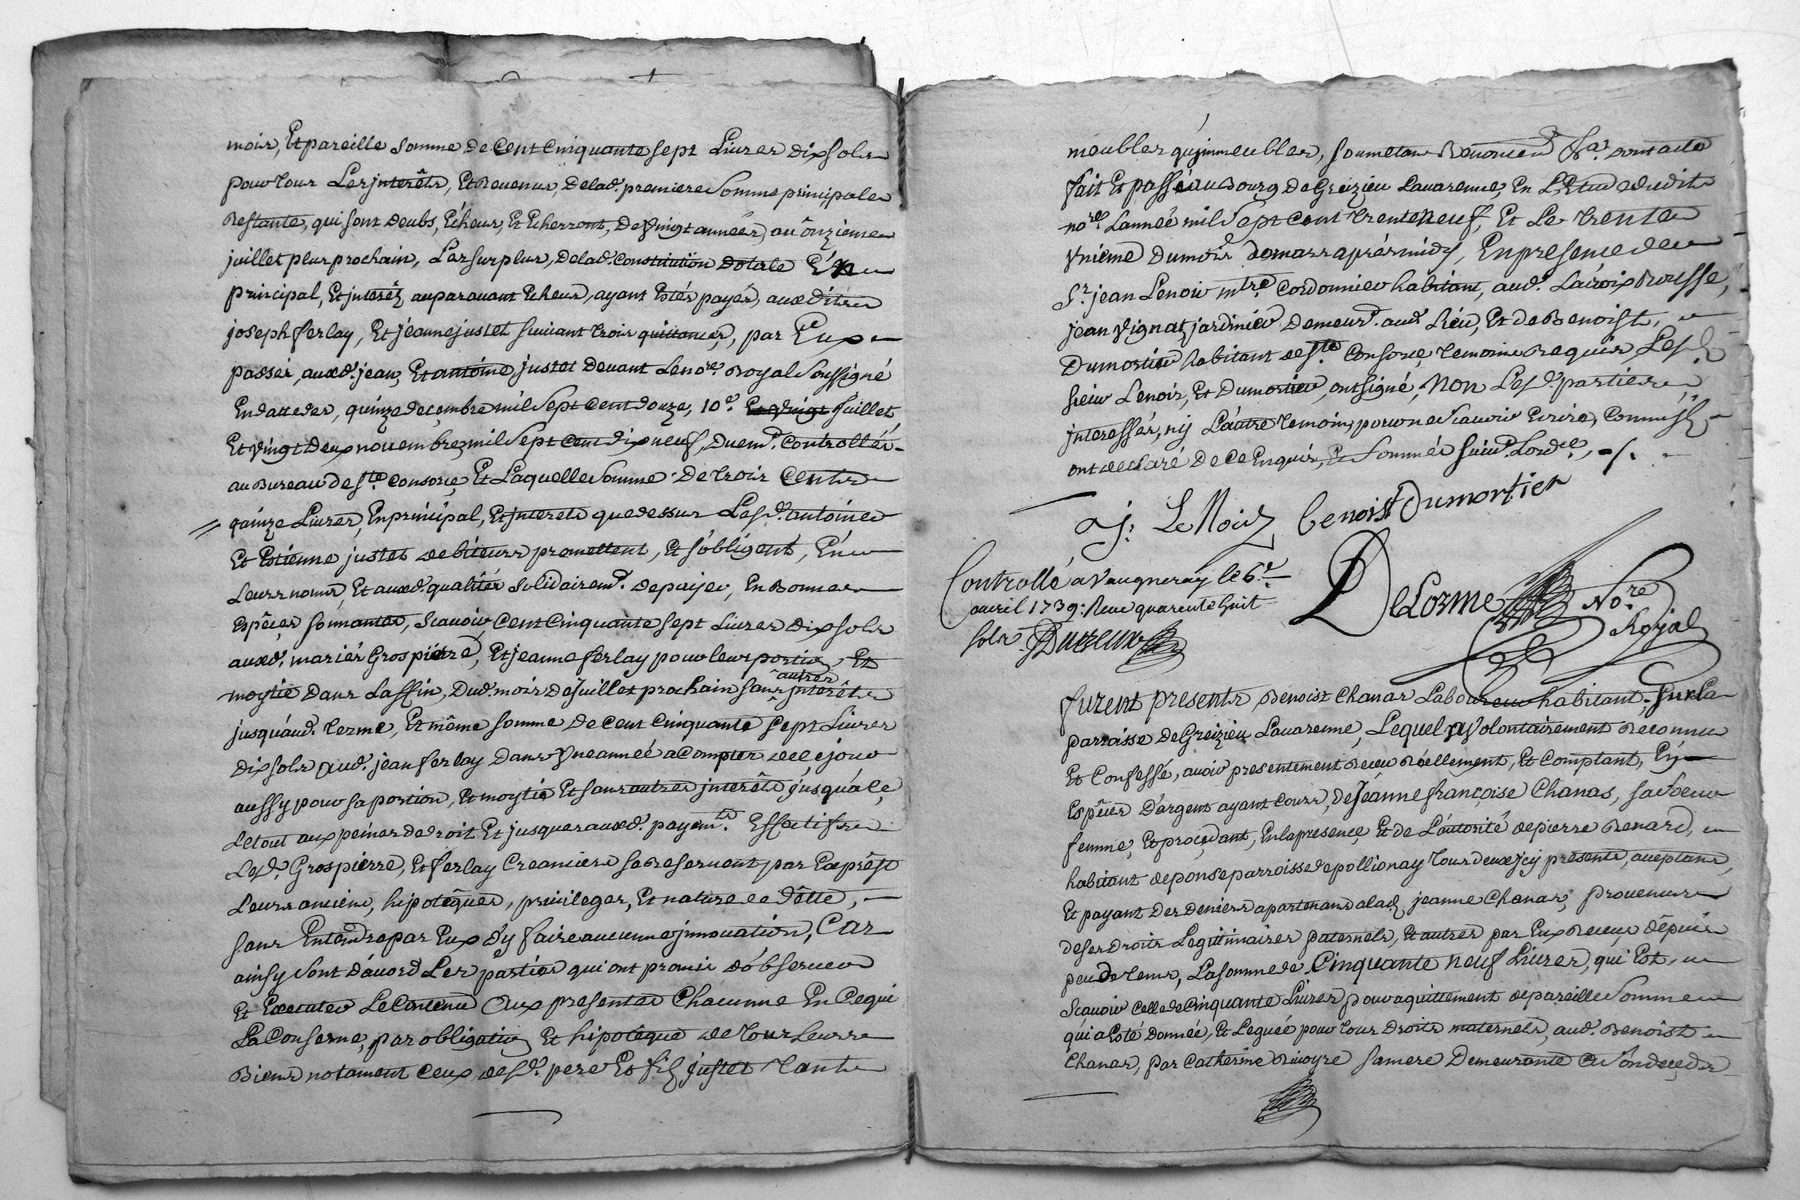 mois, Et pareille somme de Cent Cinquante sept Livres dix sols
pour tous Les jnterêts, Et Revenus, de lad. premiere somme principale
Restante, qui sont deubs, Echeus, Et Echerront, de vingt années, au onzieme
juillet plus prochain, Les surplus, de lad. Constitution dotale En
principal, Et jnterêts auparavant Echeus, ayant Estés payés, aux dits
joseph ferlay, Et jeanne justet suivant trois quittances, par Eux
passés, auxd. jean, Et antoine justet devant Le nore. Royal soussigné
En datte des, quinze decembre mil sept cent douze, 10e. juillet
Et vingt deux novembre mil sept cent dix neuf, duemt. Controllés
au Bureau de ste. Consorce, Et Laquelle somme de trois Cents
quinze Livres, En principal, Et jnterets que dessus Lesd. antoine
Et Estienne justet debiteurs promettent, Et s'obligent, En
Leurs noms, Et auxd. qualités solidairemt. de payer, En Bonnes
Espêces sonnantes, scavoir, cent cinquante sept Livres dix sols
auxd. mariés Grospierre, Et jeanne ferlay pour leur portion, Et
moytié dans La ffin, dud. mois de Juillet prochain sans autres jnterêts
jusqu'aud. terme, Et même somme de cent cinquante sept Livres
dix sols aud. jean ferlay dans vne année a Compter de ce jour
aussy pour sa portion, Et moytié Et sans autres jnterêts jusqu'alé,
Le tout aux peines de droit Et jusques auxd. payemts. Effectifs
Lesd. Grospierre, Et ferlay Creanciers se Reservent par Exprêst
Leurs anciens, hipotêques, privileges, Et nature de dêtte,
sans Entendre par Eux d'y faire aucunne jnnovation, Car
ainsy sont d'àvord Les parties qui ont promis d'observer
Et Executer Le Contenu Aux presentes Chacunne En Ce qui
La Conserne, par obligation Et hipoteque de tous Leurs
Biens notament ceux desd. pere Et fils justet tant
meubles qu'jmmeubles, soumetans Renoncent &a. dont acte
fait Et passé au Bourg de Greizieu Lavarenne, En L'Etude dudit
nore. L'année mil sept cent trente neuf, Et Le trente
vnième du mois de mars aprés midy, En presence de
sr. jean Lenoir mtre. Cordonnier habitant, aud. Lacroix Rousse,
jean vignat, jardinier demeurt. aud. Lieu, Et de Benoist
Dumortier habitant de ste. Consorce, temoins Requis, Lesd.
sieur Lenoir, Et Dumortier, ont signé, Non Lesd. parties
jnteressés, ny L'autre temoin, pour ne scavoir Ecrire, Comm'jls
ont declaré de ce Enquis, Et sommés suivt. Lordce.
a j: LeNoir benoist Dumortier
Controllé a Vaugneray le 6e.
avril 1739. Reçu quarente huit
sols.
DeLorme Nore.
Royal
furent presents Benoist Chanas Laboureur habitant, sur La
parroisse de Greizieu Lavarenne, Lequel a volontairement Reconnu
Et Confessé, avoir presentement Receu Réellement, Et Comptant, En
Espêces d'argent ayant cours, de Jéanne françoise Chanas, sa soeur
femme, Et proçedant, En la presence, Et de L'autorité de pierre Renard,
habitant de ponse parroisse de pollionay tous deux jcy présents, aceptans,
Et payant des deniers apartenans a lad. jeanne Chanas, provenus
de ses droits Legitimaires paternels, Et autres par Eux Receus depuis
peu de tems, La somme de Cinquante neuf Livres, qui Est,
scavoir celle de Cinquante Livres pour aquittement de pareille somme
qui a Esté donnée, Et Leguée pour tous droits maternels, aud. Benoist
Chanas, par Catherine Rivoyre sa mere